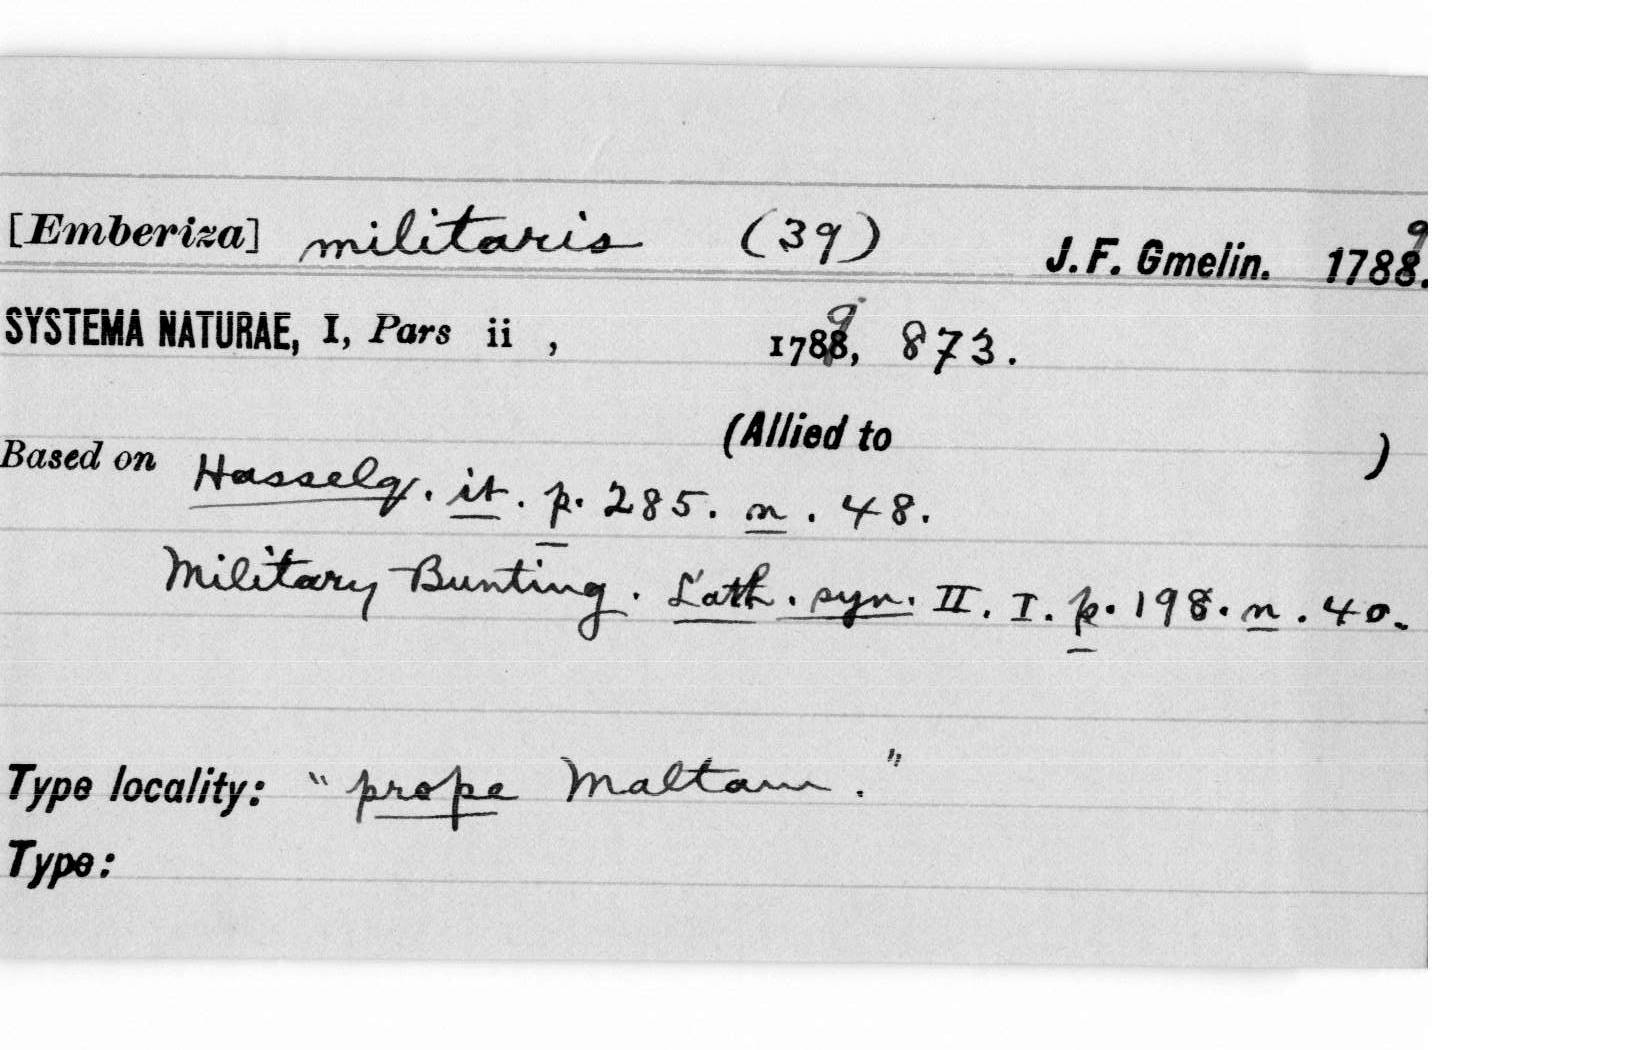 [Emberiza] militaris (39) J. F. Gmelin. 1789.
SYSTEMA NATURAE, I, Pars ii , 1789, 873.
(Allied to )
Based on Hasselq. it. p. 285. n. 48.
Military Bunting. Lath. syn. II. I. p. 198. n. 40.
Type locality: "prope Maltam."
Type: